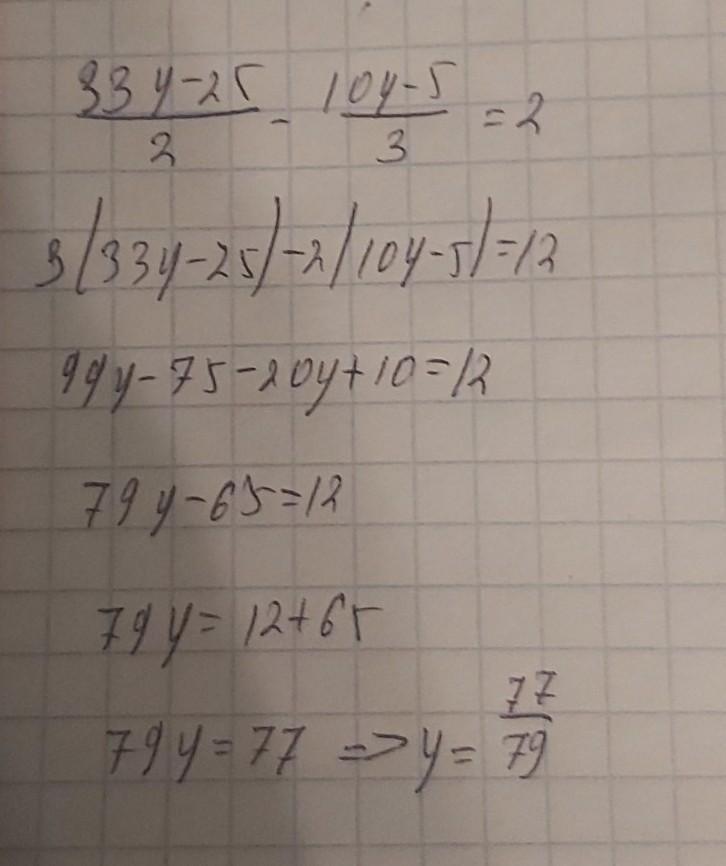 (33y-25)/2 - (10y-5)/3 = 2
3(33y-25)-2(10y-5)=12
99y-75-20y+10=12
79y-65=12
79y=12+65
79y=77 => y= 77/79